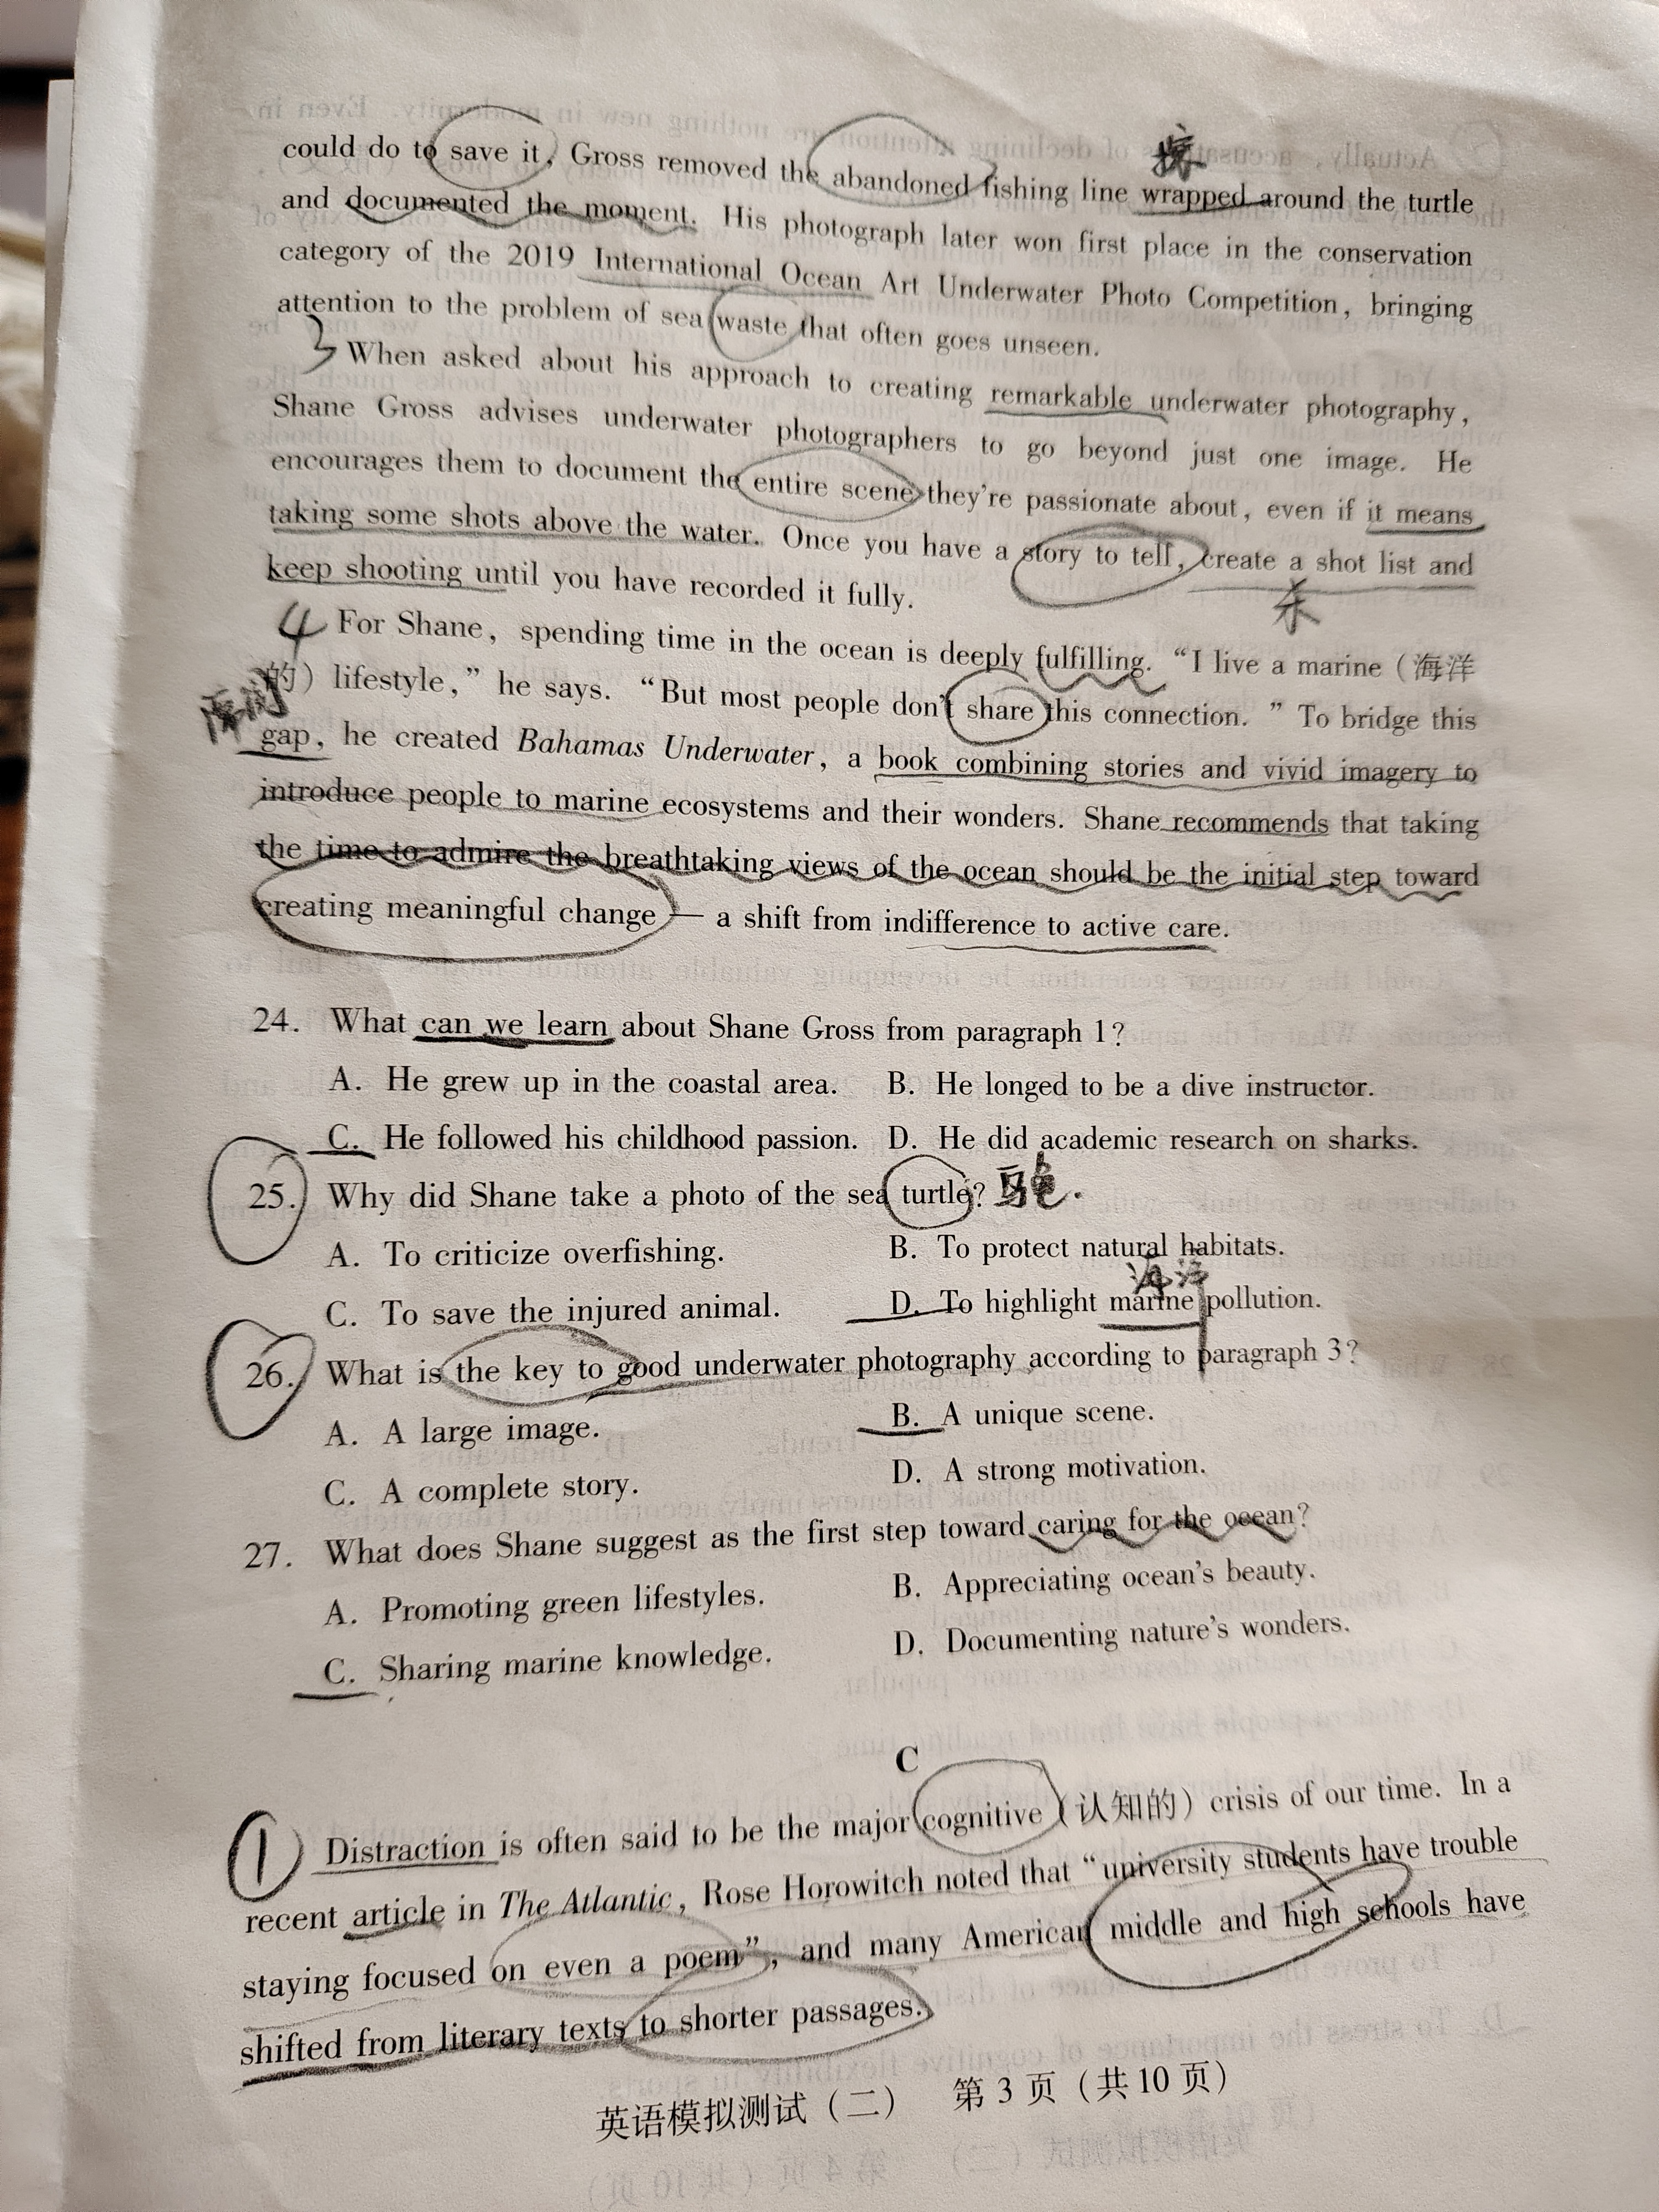 could do to save it, Gross removed the abandoned fishing line wrapped around the turtle
and documented the moment. His photograph later won first place in the conservation
category of the 2019 International Ocean Art Underwater Photo Competition, bringing
attention to the problem of sea waste that often goes unseen.
3 When asked about his approach to creating remarkable underwater photography,
Shane Gross advises underwater photographers to go beyond just one image. He
encourages them to document the entire scene they're passionate about, even if it means
taking some shots above the water. Once you have a story to tell, create a shot list and
keep shooting until you have recorded it fully.
4 For Shane, spending time in the ocean is deeply fulfilling. “I live a marine (海洋
的) lifestyle,” he says. “But most people don't share this connection. ” To bridge this
gap, he created Bahamas Underwater, a book combining stories and vivid imagery to
introduce people to marine ecosystems and their wonders. Shane recommends that taking
the time to admire the breathtaking views of the ocean should be the initial step toward
creating meaningful change — a shift from indifference to active care.
24. What can we learn about Shane Gross from paragraph 1?
A. He grew up in the coastal area. B. He longed to be a dive instructor.
C. He followed his childhood passion. D. He did academic research on sharks.
25. Why did Shane take a photo of the sea turtle?
A. To criticize overfishing. B. To protect natural habitats.
海洋
C. To save the injured animal. D. To highlight marine pollution.
26. What is the key to good underwater photography according to paragraph 3?
A. A large image. B. A unique scene.
C. A complete story. D. A strong motivation.
27. What does Shane suggest as the first step toward caring for the ocean?
A. Promoting green lifestyles. B. Appreciating ocean's beauty.
C. Sharing marine knowledge. D. Documenting nature's wonders.
C
① Distraction is often said to be the major cognitive (认知的) crisis of our time. In a
recent article in The Atlantic, Rose Horowitch noted that “university students have trouble
staying focused on even a poem”, and many American middle and high schools have
shifted from literary texts to shorter passages.
英语模拟测试(二) 第 3 页 (共 10 页)